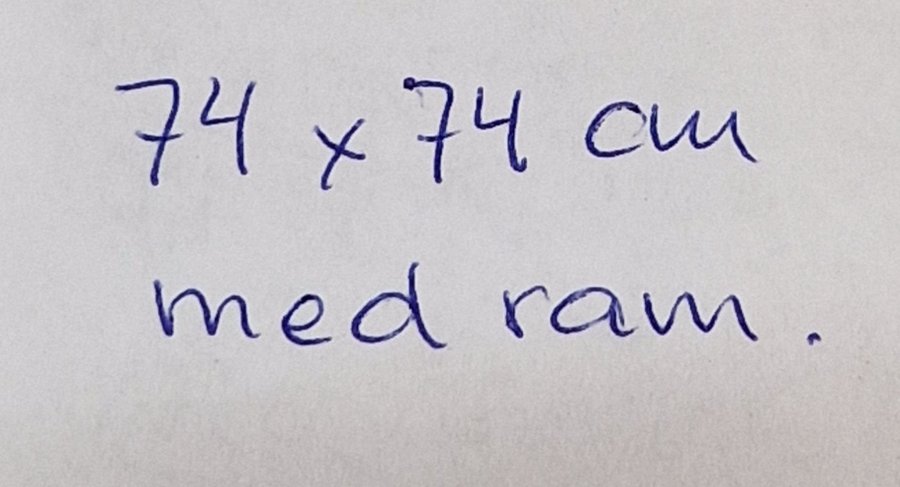 74 x 74 cm
med ram.